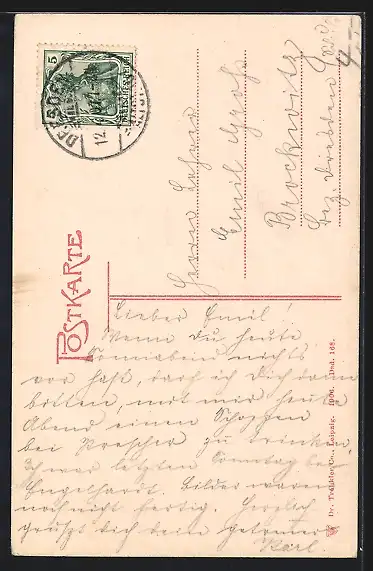 5
DRESDEN
12.
DEUTSCHES REICH
4,-
Herrn Lehrer
Emil Groß
Brockwitz
Bez. Dresden
POSTKARTE
Lieber Emil!
Wenn Du heute
Sonnabend nichts
vor hast, darf ich Dich dann
bitten, mit mir heute
Abend einen Schoppen
bei Prescher zu trinken.
Ich war letzten Sonntag bei
Engelhardt. Bilder waren
noch nicht fertig. Herzlich
grüßt Dich Dein getreuer
Karl.
Dr. Trenkler Co., Leipzig. 1906. Dsd. 168.